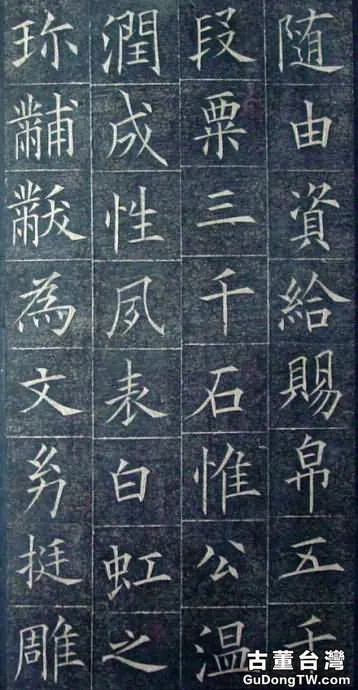 随由資給賜帛五千
段粟三千石惟公温
潤成性夙表白虹之
珎黼黻為文幼挺雕
古董台灣
GuDongTW.com